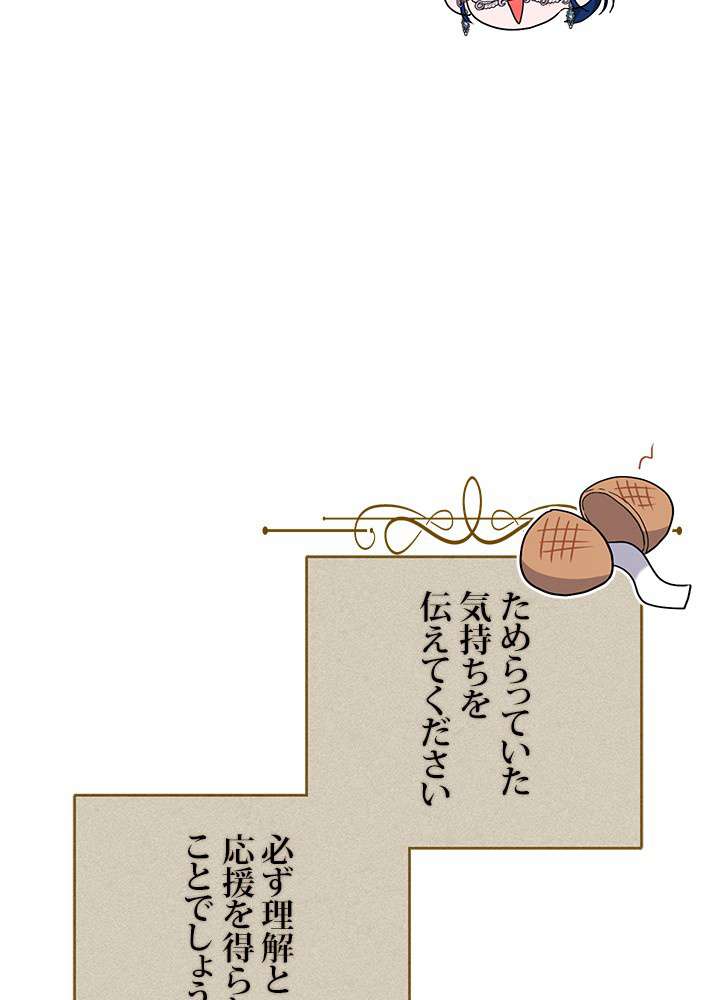 ためらっていた
気持ちを
伝えてください
必ず理解と
応援を得ら
ことでしょう